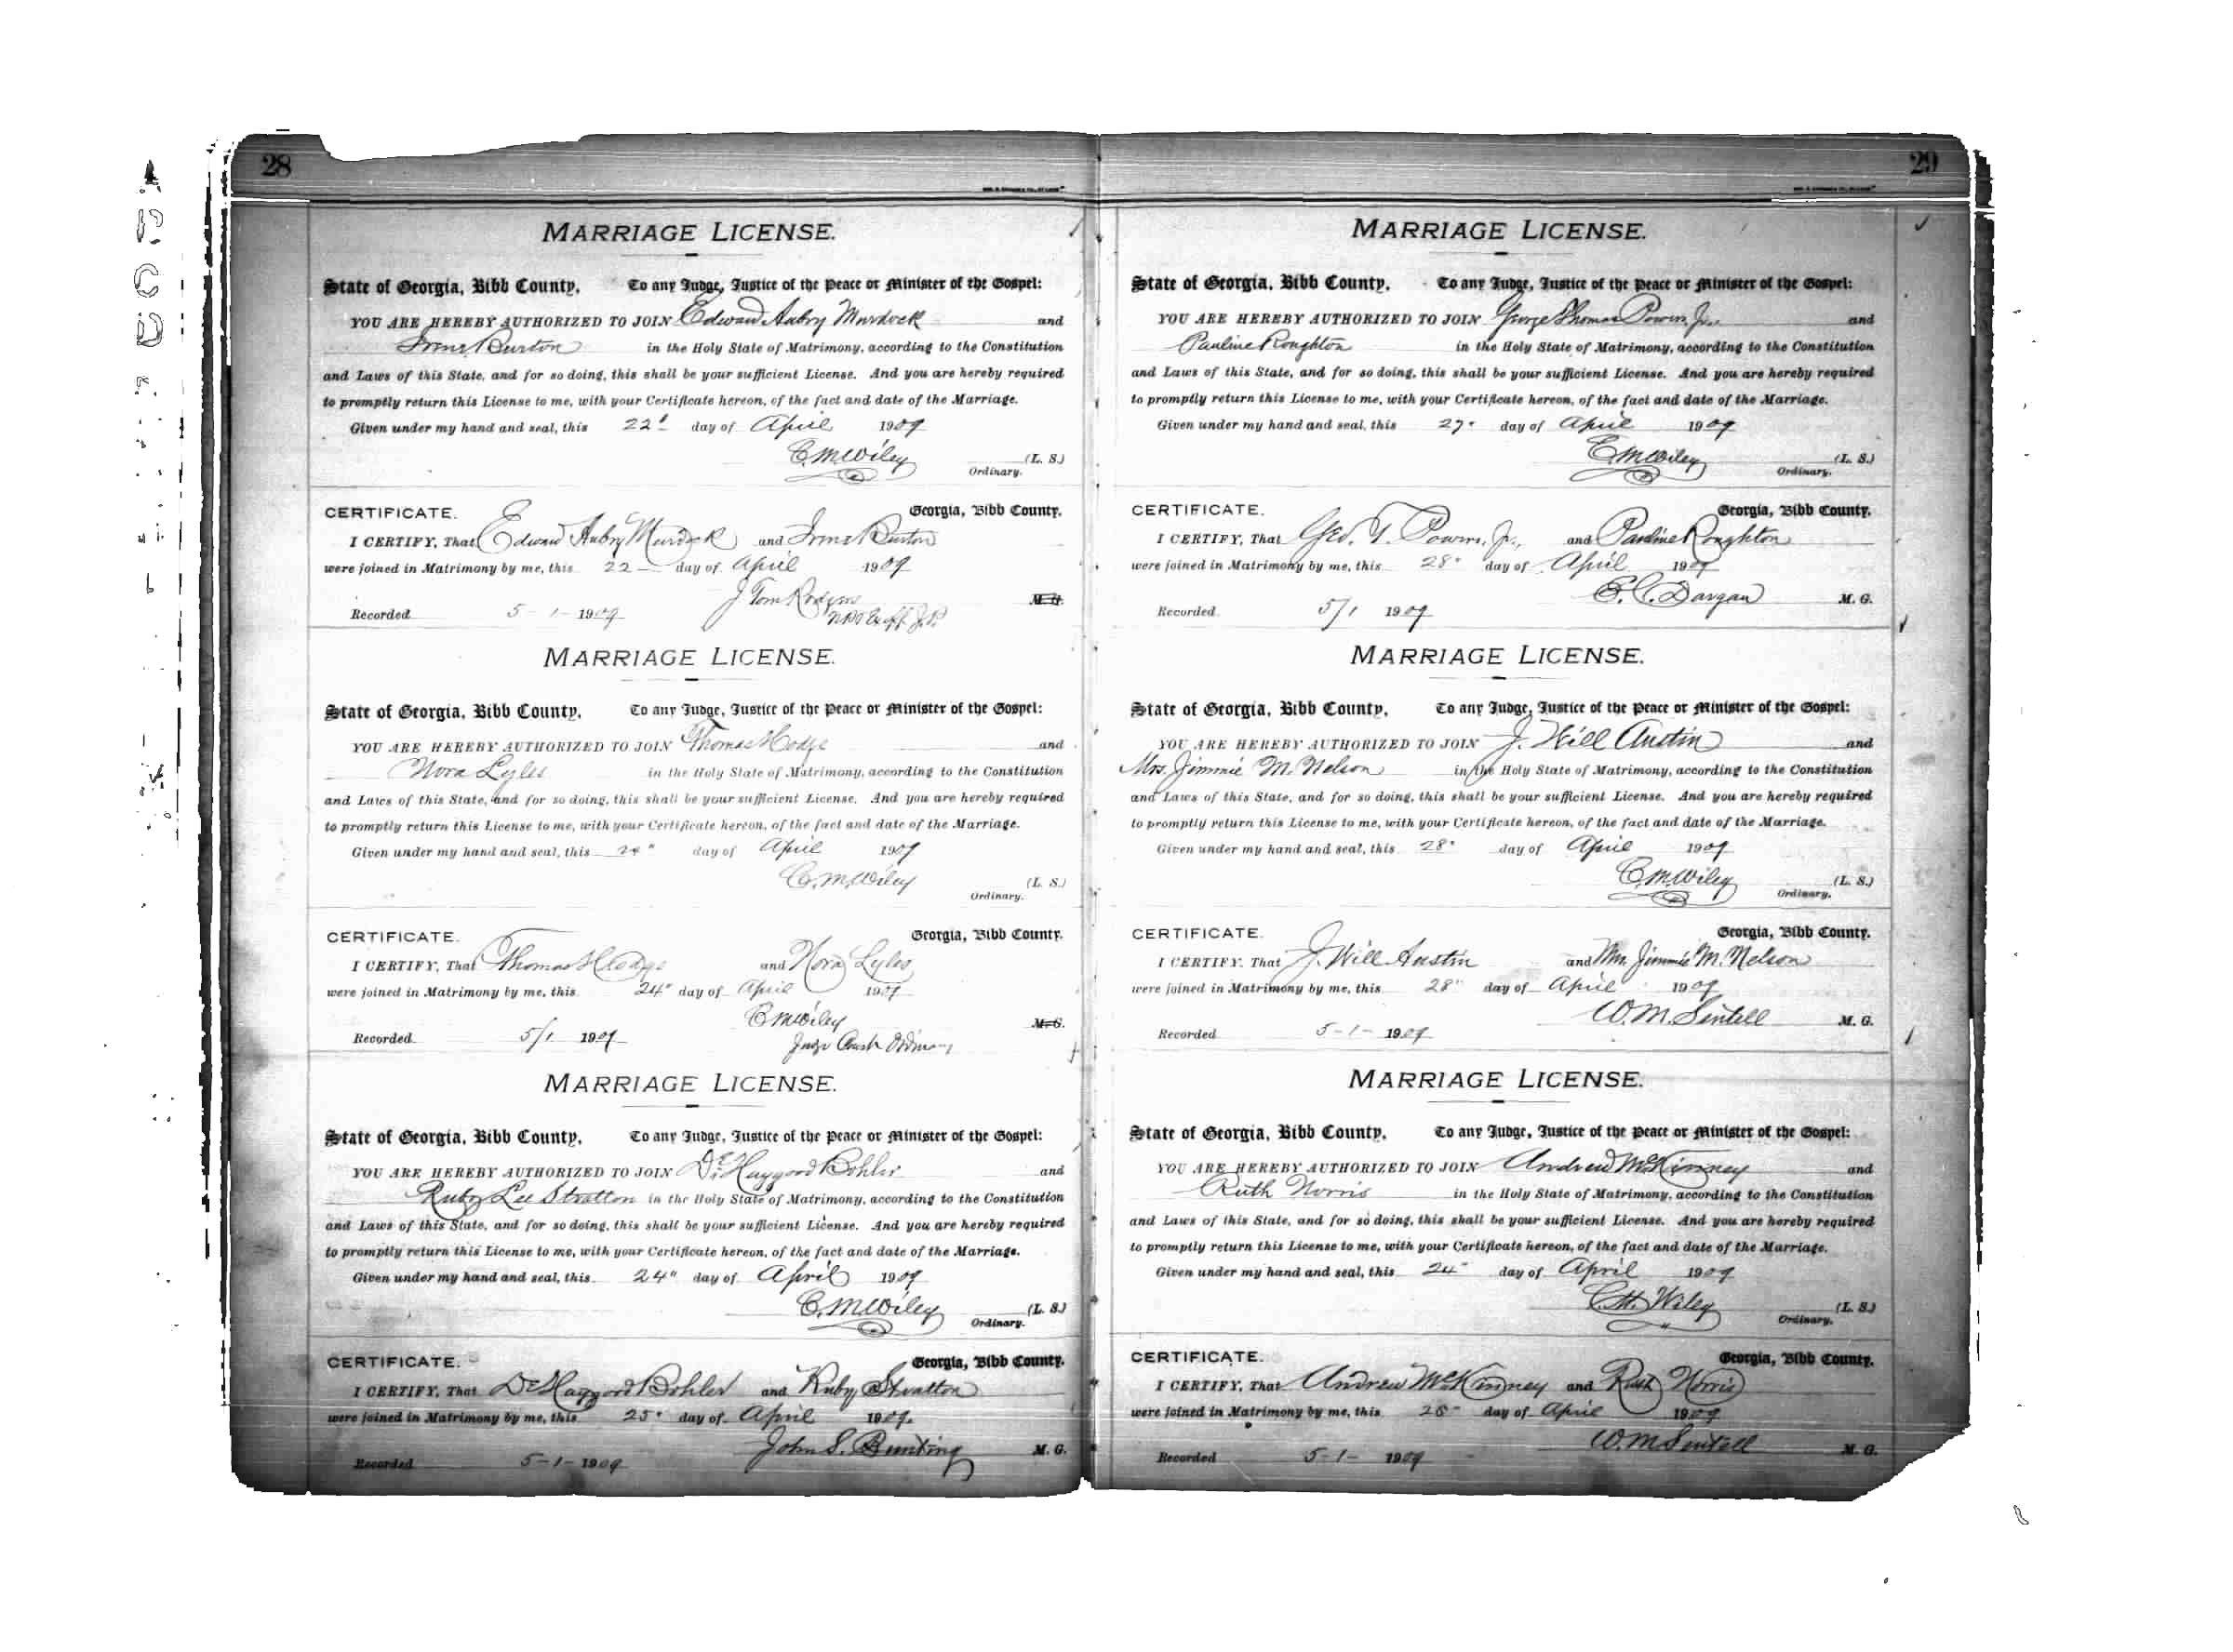 28
MARRIAGE LICENSE.
State of Georgia, Bibb County. To any Judge, Justice of the Peace or Minister of the Gospel:
YOU ARE HEREBY AUTHORIZED TO JOIN Edward Aubry Murdock and
Irene Burton in the Holy State of Matrimony, according to the Constitution
and Laws of this State, and for so doing, this shall be your sufficient License. And you are hereby required
to promptly return this License to me, with your Certificate hereon, of the fact and date of the Marriage.
Given under my hand and seal, this 22" day of April 1909
C. M. Wiley (L. S.)
Ordinary.
CERTIFICATE. Georgia, Bibb County.
I CERTIFY, That Edward Aubry Murdock and Irene Burton
were joined in Matrimony by me, this 22 day of April 1909
J Tom Rodgers M. G.
Recorded 5-1-1909 J.P.
MARRIAGE LICENSE.
State of Georgia, Bibb County. To any Judge, Justice of the Peace or Minister of the Gospel:
YOU ARE HEREBY AUTHORIZED TO JOIN Thomas Hodge and
Nora Lyles in the Holy State of Matrimony, according to the Constitution
and Laws of this State, and for so doing, this shall be your sufficient License. And you are hereby required
to promptly return this License to me, with your Certificate hereon, of the fact and date of the Marriage.
Given under my hand and seal, this 24" day of April 1909
C. M. Wiley (L. S.)
Ordinary.
CERTIFICATE. Georgia, Bibb County.
I CERTIFY, That Thomas Hodge and Nora Lyles
were joined in Matrimony by me, this 24" day of April 1909
C M Wiley M. G.
Recorded 5/1 1909 Ordinary
MARRIAGE LICENSE.
State of Georgia, Bibb County. To any Judge, Justice of the Peace or Minister of the Gospel:
YOU ARE HEREBY AUTHORIZED TO JOIN Dr. Haygood Bohler and
Ruby Lee Stratton in the Holy State of Matrimony, according to the Constitution
and Laws of this State, and for so doing, this shall be your sufficient License. And you are hereby required
to promptly return this License to me, with your Certificate hereon, of the fact and date of the Marriage.
Given under my hand and seal, this 24" day of April 1909
C. M. Wiley (L. S.)
Ordinary.
CERTIFICATE. Georgia, Bibb County.
I CERTIFY, That Dr Haygood Bohler and Ruby Stratton
were joined in Matrimony by me, this 25" day of April 1909.
John S. Bunting M. G.
Recorded 5-1-1909
29
MARRIAGE LICENSE.
State of Georgia, Bibb County. To any Judge, Justice of the Peace or Minister of the Gospel:
YOU ARE HEREBY AUTHORIZED TO JOIN George Thomas Powers, Jr. and
Pauline Roughton in the Holy State of Matrimony, according to the Constitution
and Laws of this State, and for so doing, this shall be your sufficient License. And you are hereby required
to promptly return this License to me, with your Certificate hereon, of the fact and date of the Marriage.
Given under my hand and seal, this 27" day of April 1909
C. M. Wiley (L. S.)
Ordinary.
CERTIFICATE. Georgia, Bibb County.
I CERTIFY, That Geo. T. Powers, Jr., and Pauline Roughton
were joined in Matrimony by me, this 28" day of April 1909
E. C. Dargan M. G.
Recorded 5/1 1909
MARRIAGE LICENSE.
State of Georgia, Bibb County. To any Judge, Justice of the Peace or Minister of the Gospel:
YOU ARE HEREBY AUTHORIZED TO JOIN J. Will Austin and
Mrs. Jimmie M. Nelson in the Holy State of Matrimony, according to the Constitution
and Laws of this State, and for so doing, this shall be your sufficient License. And you are hereby required
to promptly return this License to me, with your Certificate hereon, of the fact and date of the Marriage.
Given under my hand and seal, this 28" day of April 1909
C. M. Wiley (L. S.)
Ordinary.
CERTIFICATE. Georgia, Bibb County.
I CERTIFY. That J. Will Austin and Mrs. Jimmie M. Nelson
were joined in Matrimony by me, this 28" day of April 1909
W. M. Sentell M. G.
Recorded 5-1-1909
MARRIAGE LICENSE.
State of Georgia, Bibb County. To any Judge, Justice of the Peace or Minister of the Gospel:
YOU ARE HEREBY AUTHORIZED TO JOIN Andrew McKinney and
Ruth Norris in the Holy State of Matrimony, according to the Constitution
and Laws of this State, and for so doing, this shall be your sufficient License. And you are hereby required
to promptly return this License to me, with your Certificate hereon, of the fact and date of the Marriage.
Given under my hand and seal, this 24" day of April 1909
C. M. Wiley (L. S.)
Ordinary.
CERTIFICATE. Georgia, Bibb County.
I CERTIFY, That Andrew McKinney and Ruth Norris
were joined in Matrimony by me, this day of April 1909
W. M Sentell M. G.
Recorded 5-1-1909